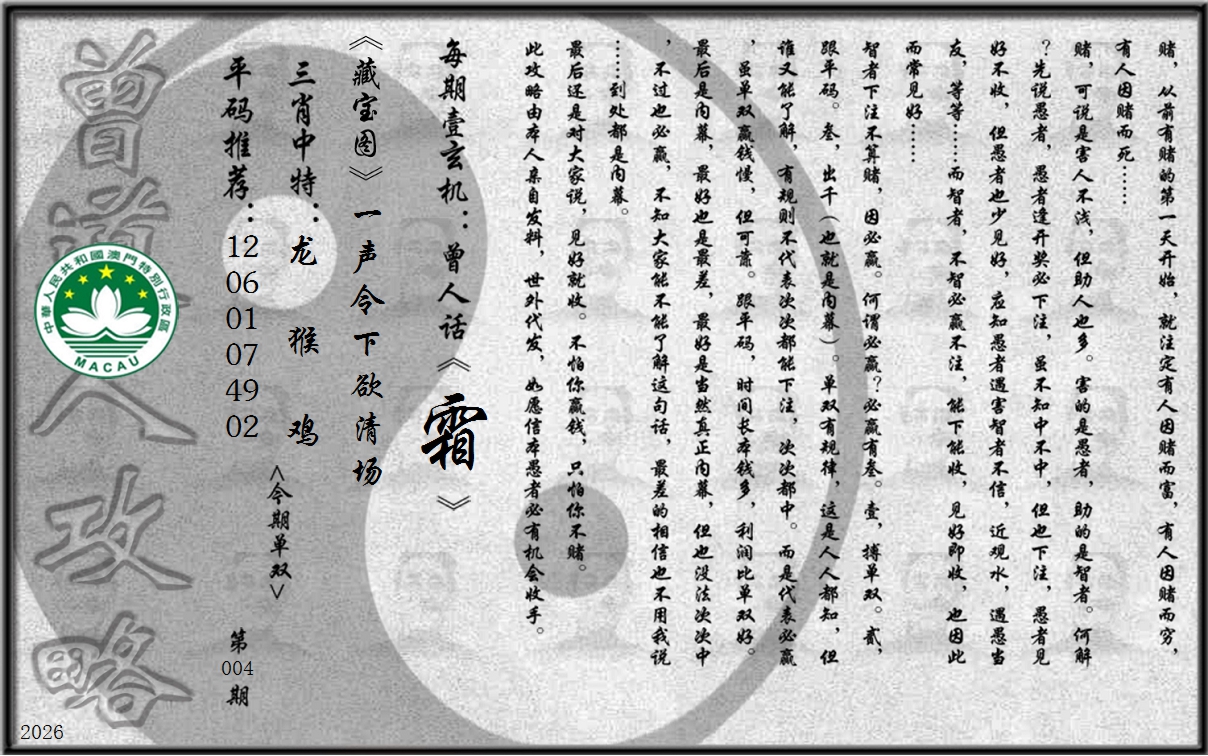 赌，从前有赌的第一天开始，就注定有人因赌而富，有人因赌而穷，
有人因赌而死……
赌，可说是害人不浅，但助人也多。害的是愚者，助的是智者。何解
？先说愚者，愚者逢开奖必下注，虽不知中不中，但也下注，愚者见
好不收，但愚者也少见好，应知愚者遇害智者不信，近观水，遇愚当
友，等等……而智者，不智必赢不注，能下能收，见好即收，也因此
而常见好……
智者下注不算赌，因必赢。何谓必赢？必赢有叁。壹，搏单双。贰，
跟平码。叁，出千（也就是内幕）。单双有规律，这是人人都知，但
谁又能了解，有规则不代表次次都能下注，次次都中。而是代表必赢
，虽单双赢钱慢，但可靠。跟平码，时间长本钱多，利润比单双好。
最后是内幕，最好也是最差，最好是当然真正内幕，但也没法次次中
，不过也必赢，不知大家能不能了解这句话，最差的相信也不用我说
……到处都是内幕。
最后还是对大家说，见好就收。不怕你赢钱，只怕你不赌。
此攻略由本人亲自发料，世外代发，如愿信本愚者必有机会收手。
每期壹玄机：曾人话《霜》
《藏宝图》一声令下欲清场
三肖中特：龙 猴 鸡
<今期单双>
平码推荐：12 06 01 07 49 02
第004期
曾道人攻略
中華人民共和國澳門特別行政區
MACAU
2026